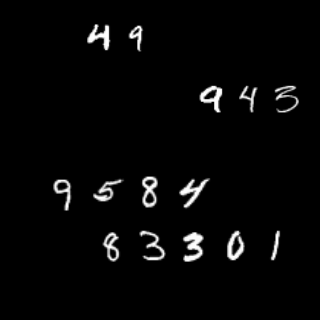 4 9
9 4 3
9 5 8 4
8 3 3 0 1